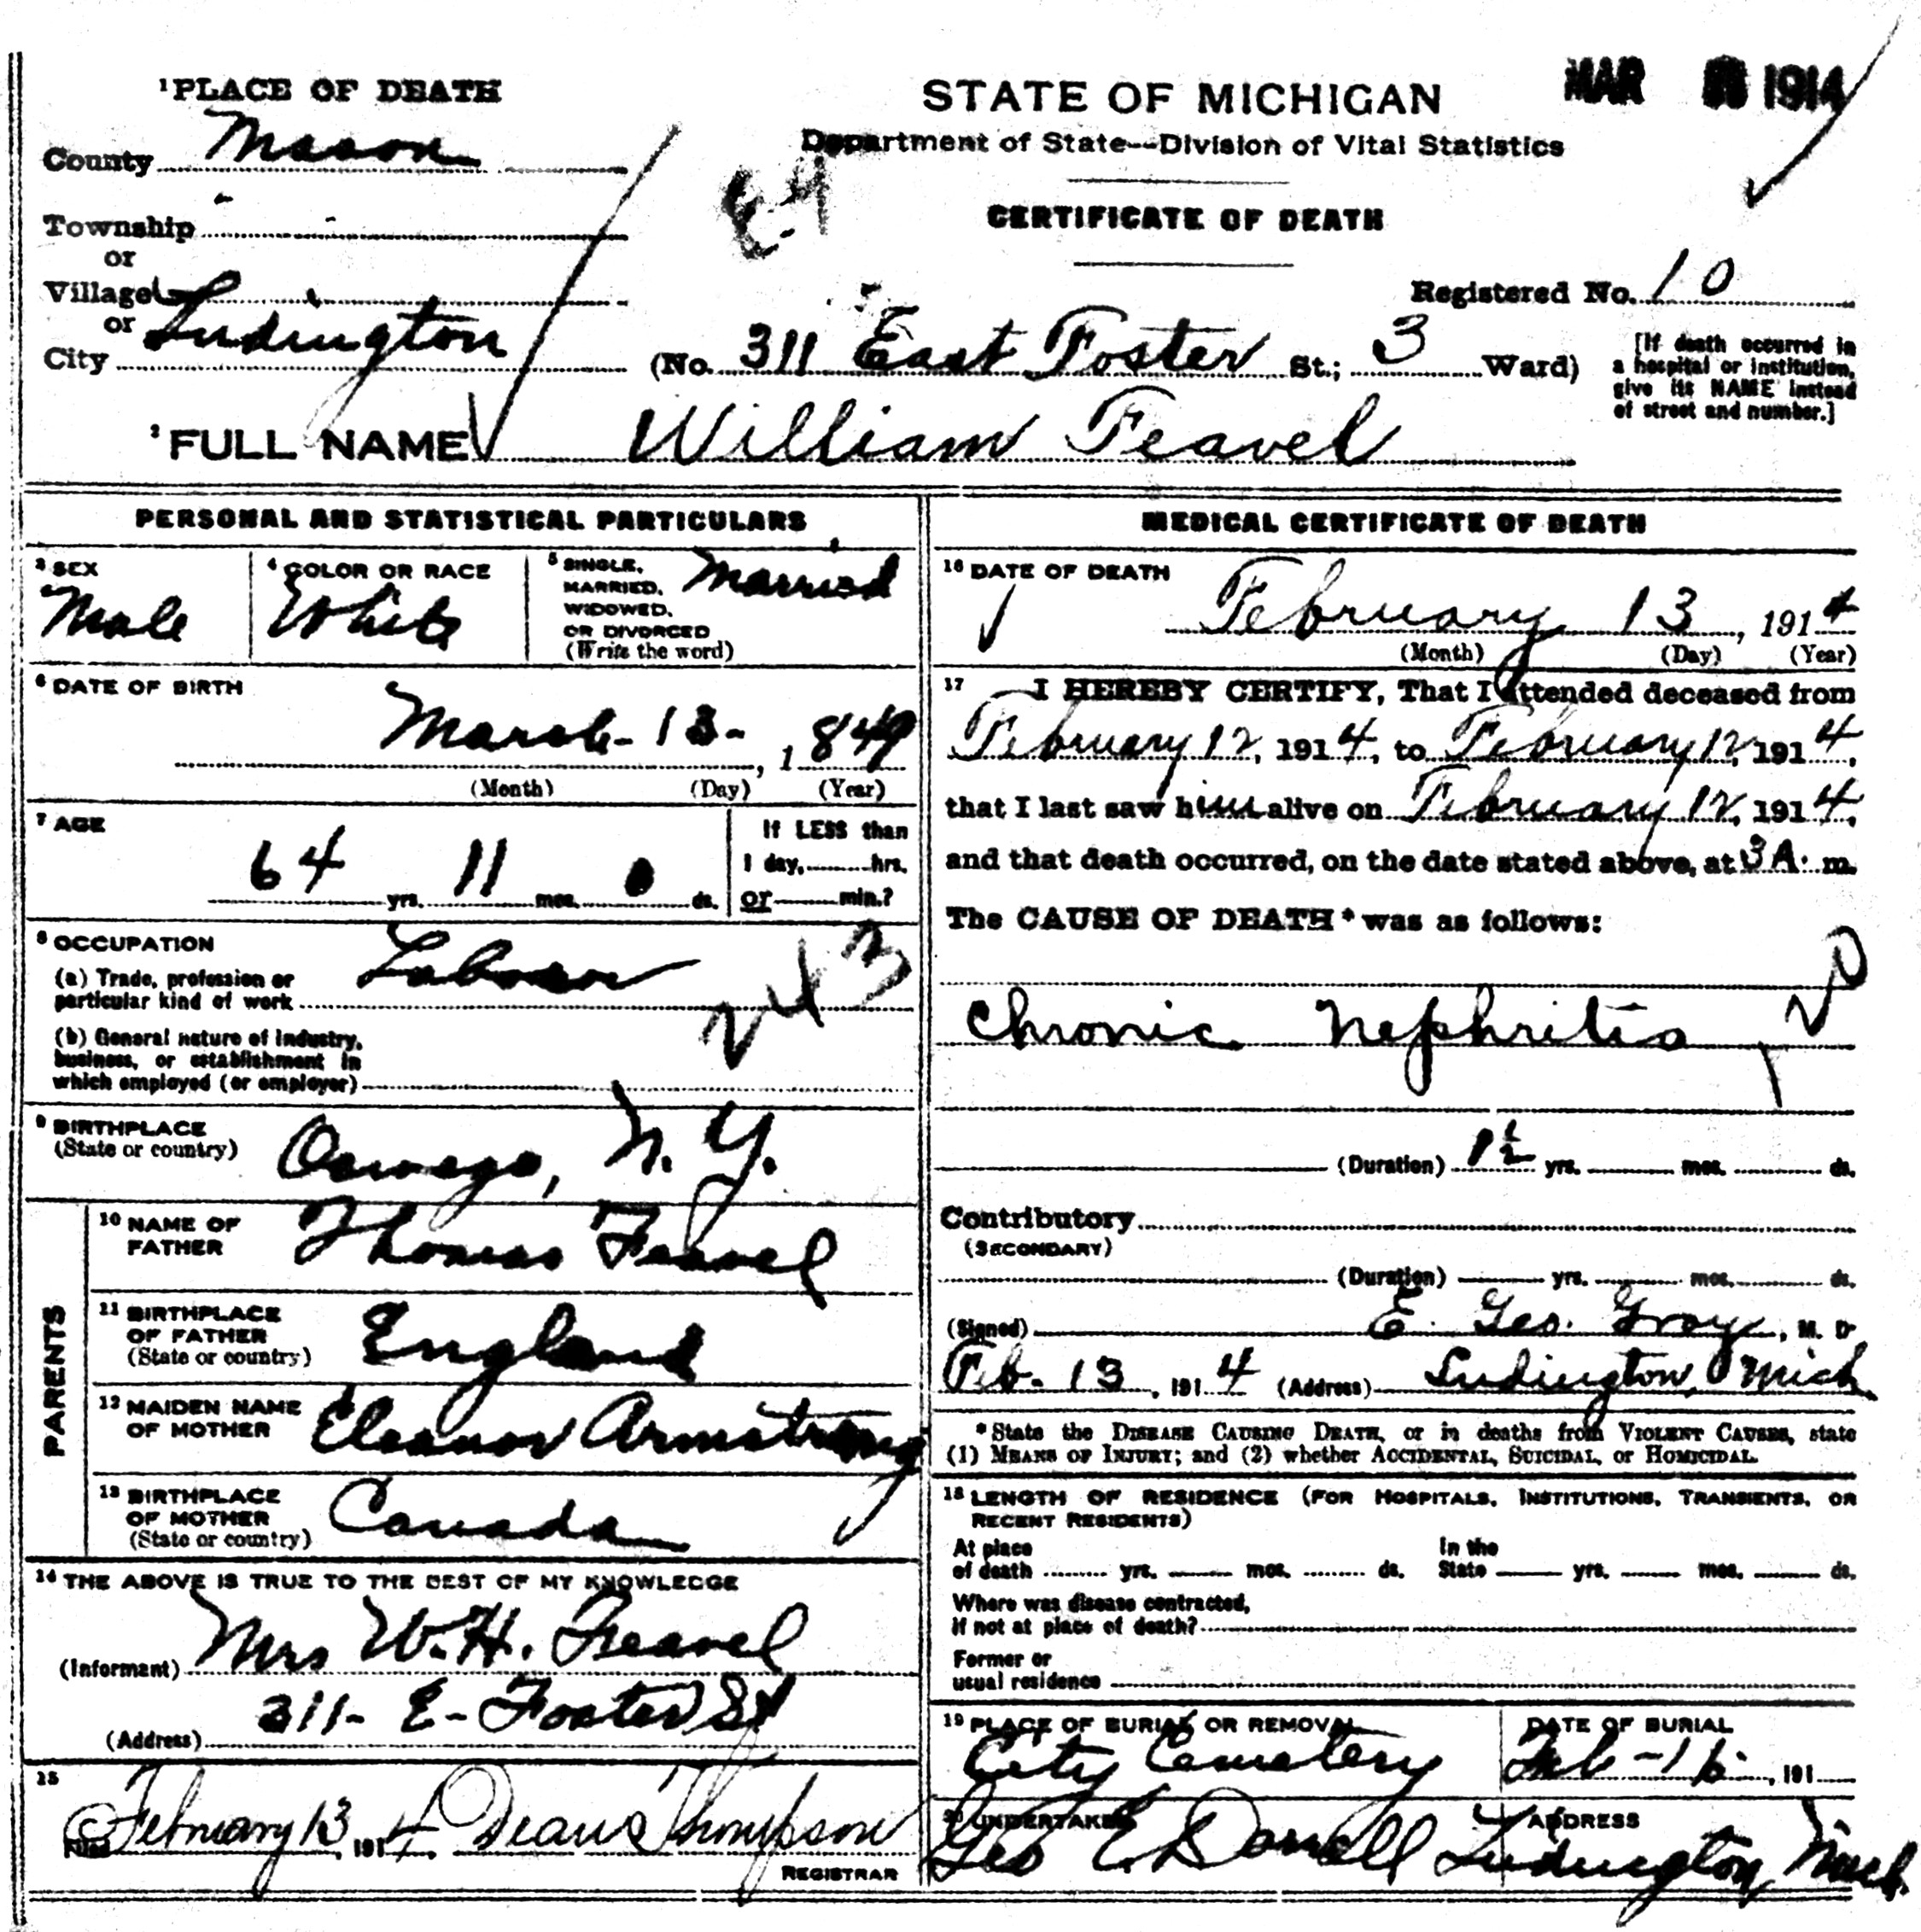 ¹PLACE OF DEATH
County Mason
Township
or
Village
or
City Ludington
STATE OF MICHIGAN
Department of State—Division of Vital Statistics
CERTIFICATE OF DEATH
MAR 1914
Registered No. 10
(No. 311 East Foster St.; 3 Ward)
[If death occurred in
a hospital or institution,
give its NAME instead
of street and number.]
²FULL NAME William Feavel
PERSONAL AND STATISTICAL PARTICULARS
³SEX
Male
⁴COLOR OR RACE
White
⁵SINGLE,
MARRIED,
WIDOWED,
OR DIVORCED
(Write the word)
Married
⁶DATE OF BIRTH
March - 13 - , 1849
(Month) (Day) (Year)
⁷AGE
64 yrs. 11 mos. 0 ds.
If LESS than
1 day, hrs.
or min.?
⁸OCCUPATION
(a) Trade, profession or
particular kind of work Laborer
243
(b) General nature of industry,
business, or establishment in
which employed (or employer)
⁹BIRTHPLACE
(State or country)
Oswego, N. Y.
PARENTS
¹⁰NAME OF
FATHER
Thomas Feavel
¹¹BIRTHPLACE
OF FATHER
(State or country)
England
¹²MAIDEN NAME
OF MOTHER
Eleanor Armstrong
¹³BIRTHPLACE
OF MOTHER
(State or country)
Canada
¹⁴THE ABOVE IS TRUE TO THE BEST OF MY KNOWLEDGE
(Informant) Mrs W. H. Feavel
(Address) 311 - E - Foster St
15
Filed February 13, 1914. Dean Thompson
REGISTRAR
MEDICAL CERTIFICATE OF DEATH
¹⁶DATE OF DEATH
February 13, 1914
(Month) (Day) (Year)
17 I HEREBY CERTIFY, That I attended deceased from
February 12, 1914, to February 12, 1914,
that I last saw him alive on February 12, 1914,
and that death occurred, on the date stated above, at 3 A. m.
The CAUSE OF DEATH* was as follows:
Chronic Nephritis
(Duration) 1½ yrs. mos. ds.
Contributory
(SECONDARY)
(Duration) yrs. mos. ds.
(Signed) E. Geo. Gray, M. D.
Feb. 13, 1914 (Address) Ludington, Mich.
*State the DISEASE CAUSING DEATH, or in deaths from VIOLENT CAUSES, state
(1) MEANS OF INJURY; and (2) whether ACCIDENTAL, SUICIDAL, or HOMICIDAL.
¹⁸LENGTH OF RESIDENCE (FOR HOSPITALS, INSTITUTIONS, TRANSIENTS, OR
RECENT RESIDENTS)
At place
of death yrs. mos. ds.
In the
State yrs. mos. ds.
Where was disease contracted,
if not at place of death?
Former or
usual residence
¹⁹PLACE OF BURIAL OR REMOVAL
City Cemetery
DATE OF BURIAL
Feb - 16, 191
²⁰UNDERTAKER
Geo E. Darrell
ADDRESS
Ludington, Mich.